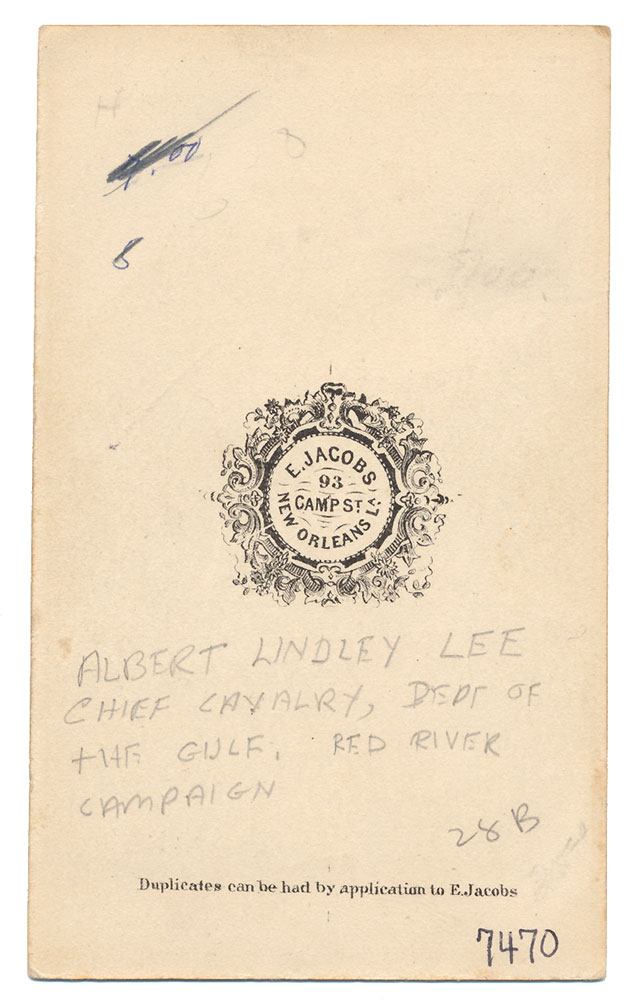 8
E. JACOBS
93
CAMP ST.
NEW ORLEANS LA
ALBERT LINDLEY LEE
CHIEF CAVALRY, DEPT OF
THE GULF. RED RIVER
CAMPAIGN
28 B
Duplicates can be had by application to E. Jacobs
7470